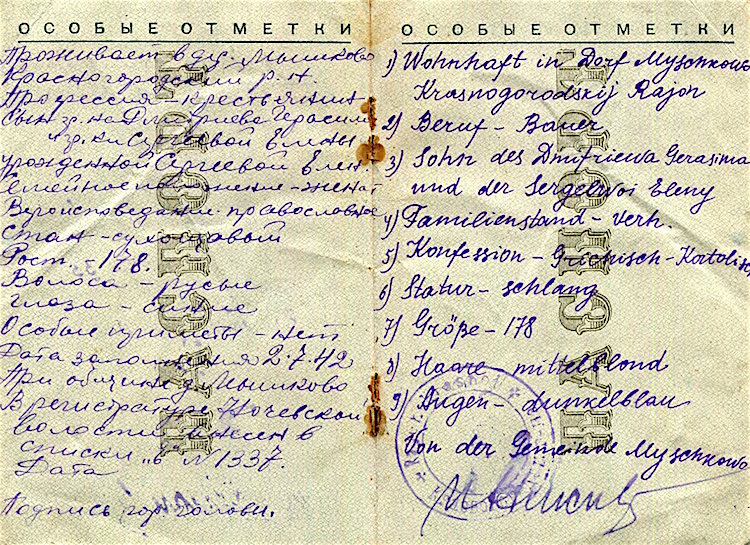 ОСОБЫЕ ОТМЕТКИ
Проживает в д. Мышково
Красногородский р. н.
Профессия – крестьянин
Сын гр. на Дмитриева Герасима
гр. ки Сергеевой Елены
урожденной Сергеевой Елен
Семейное положение – женат
Вероисповедание православное
Стан – сухощавый
Рост – 178.
Волоса – русые
глаза – синие
Особые приметы – нет
Дата заполнения 2.7.42
При общине д. Мышково
В регистратуре
волости внесен в
списки "в" N 1337.
Дата
Подпись гор головы.
ОСОБЫЕ ОТМЕТКИ
1) Wohnhaft in Dorf Myschkowo
Krasnogorodskij Rajon
2) Beruf – Bauer
3) Sohn des Dmitriewa Gerasima
und der Eleny
4) Familienstand – verh.
5) Konfession – Grichisch-
6) Statur – schlang
7) Größe – 178
8) Haare – mittelblond
9) Augen – dunkelblau
Von der Gemeinde Myschkowo
ПАСПОРТ
ПАСПОРТ